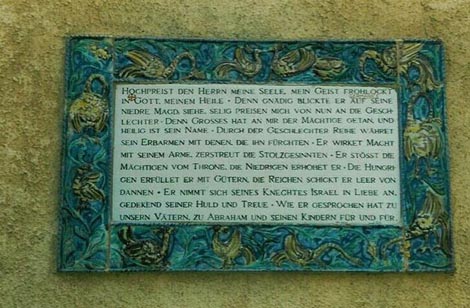 HOCHPREIST DEN HERRN MEINE SEELE, MEIN GEIST FROHLOCKT
IN GOTT, MEINEM HEILE · DENN GNÄDIG BLICKTE ER AUF SEINE
NIEDRE MAGD, SIEHE, SELIG PREISEN MICH VON NUN AN DIE GESCH-
LECHTER · DENN GROSSES HAT AN MIR DER MÄCHTIGE GETAN, UND
HEILIG IST SEIN NAME · DURCH DER GESCHLECHTER REIHE WÄHRET
SEIN ERBARMEN MIT DENEN, DIE IHN FÜRCHTEN · ER WIRKET MACHT
MIT SEINEM ARME, ZERSTREUT DIE STOLZGESINNTEN · ER STÖSST DIE
MÄCHTIGEN VOM THRONE, DIE NIEDRIGEN ERHÖHET ER · DIE HUNGRI-
GEN ERFÜLLET ER MIT GÜTERN, DIE REICHEN SCHICKT ER LEER VON
DANNEN · ER NIMMT SICH SEINES KNECHTES ISRAEL IN LIEBE AN,
GEDENKEND SEINER HULD UND TREUE · WIE ER GESPROCHEN HAT ZU
UNSERN VÄTERN, ZU ABRAHAM UND SEINEN KINDERN FÜR UND FÜR